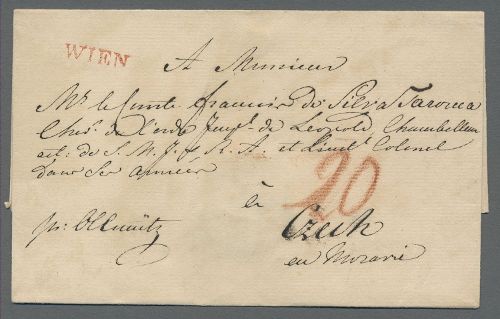 WIEN
A Monsieur
Mr. le Comte François de Silva Tarouca
Chev. de l'ordre Impl. de Leopold, Chambellan
act: de S. M. J. & R. A. et Lieut. Colonel
dans Ses armées
20
à
pr: Ollmütz
Czech
en Moravie